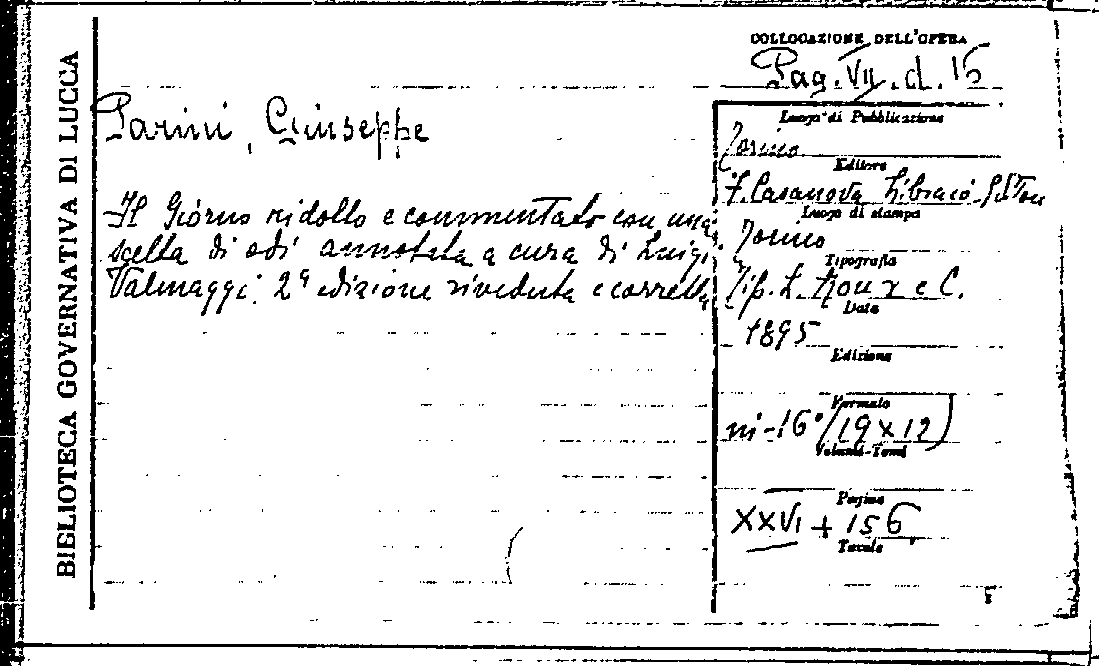 BIBLIOTECA GOVERNATIVA DI LUCCA
COLLOCAZIONE DELL'OPERA
Pag. VII. d. 15
Parini, Giuseppe
Il Giorno ridotto e commentato con una
scelta di odi annotata a cura di Luigi
Valmaggi. 2ª edizione riveduta e corretta
Luogo di Pubblicazione
Torino
Editore
F. Casanova Libraio-
Luogo di stampa
Torino
Tipografia
Tip. L. Roux e C.
Data
1895
Edizione
Formato
in-16° (19 x 12)
Volumi-Tomi
Pagine
XXVI + 156
Tavole